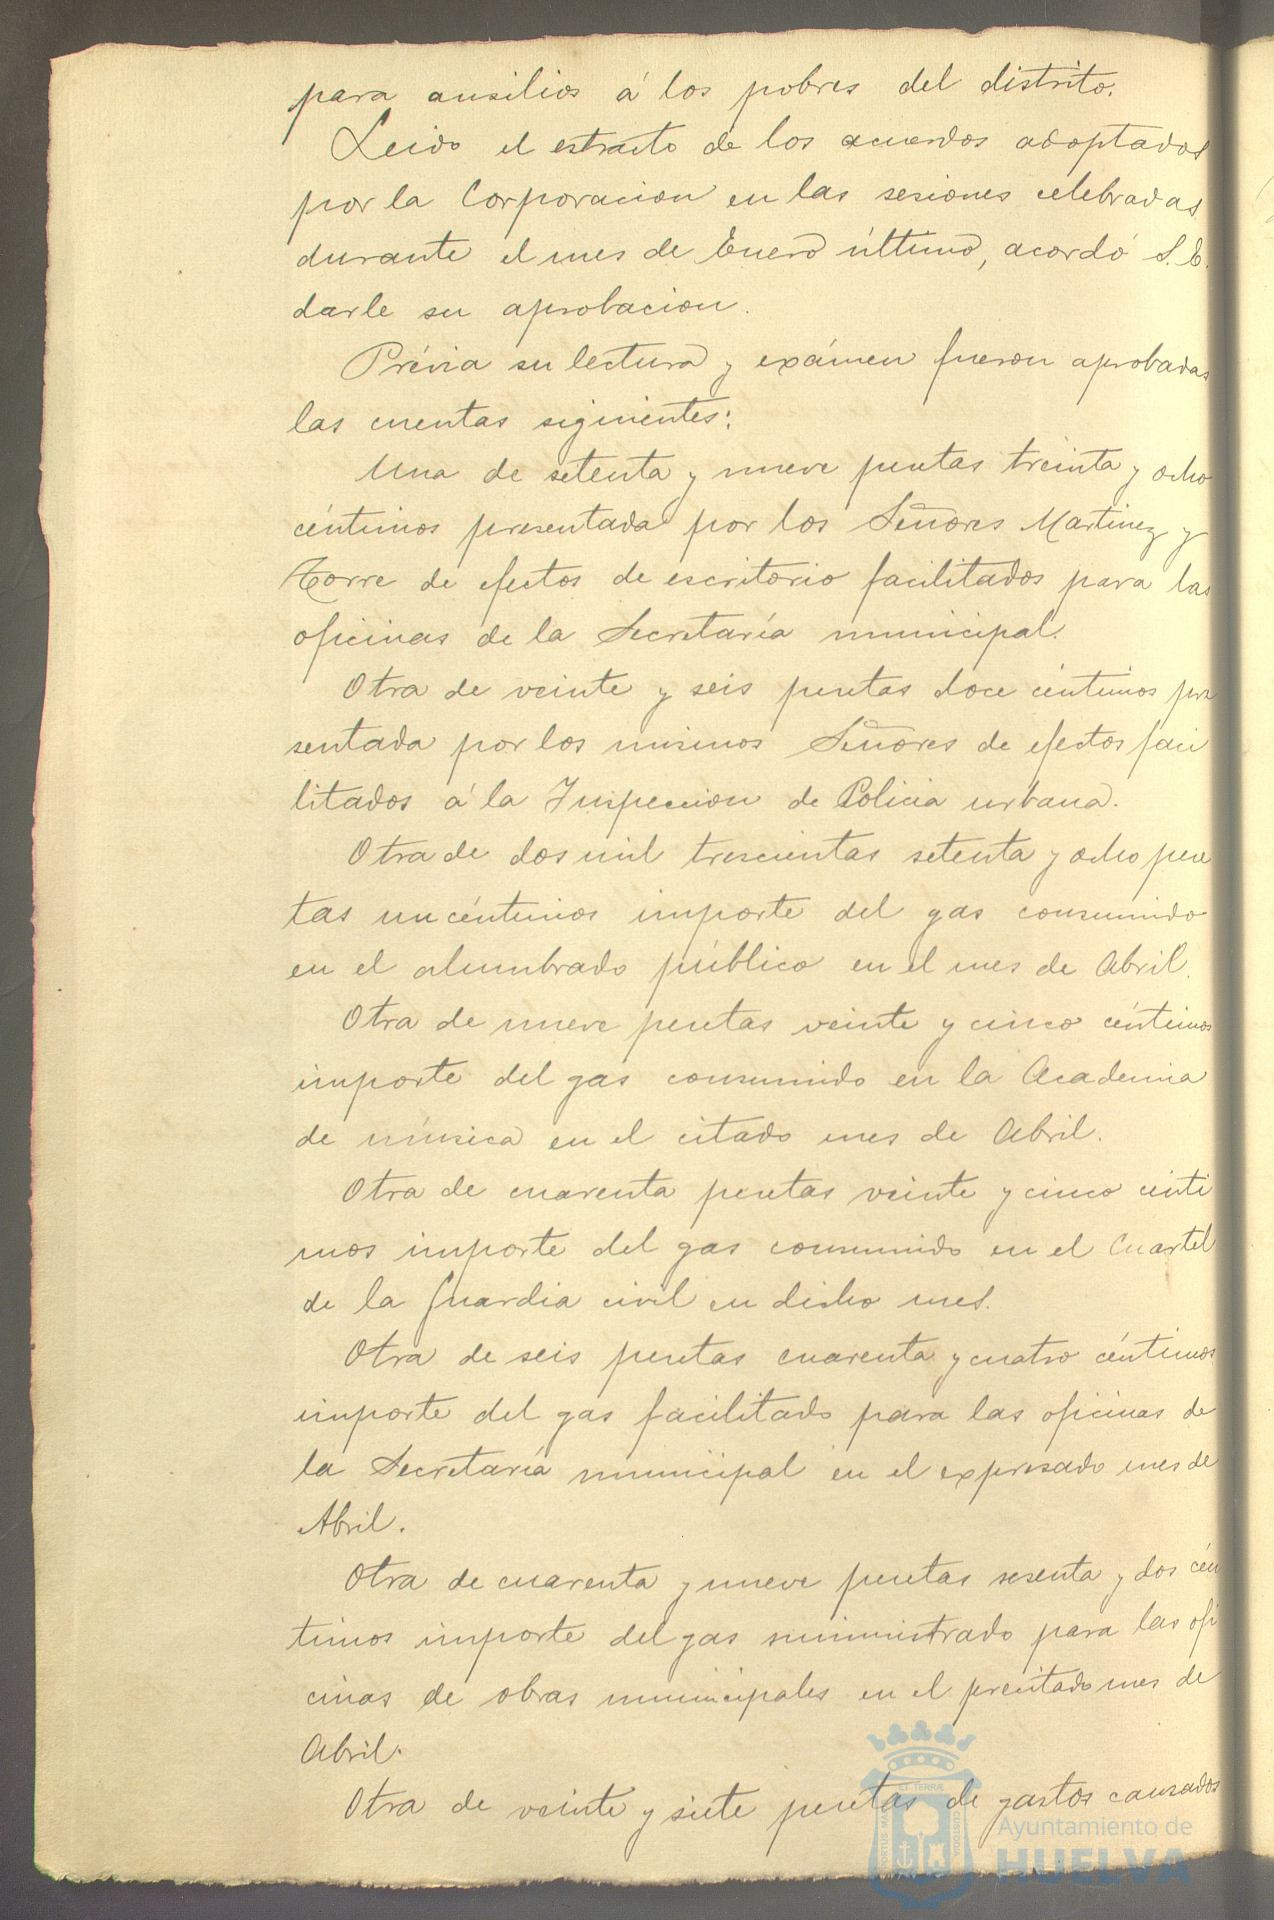 para ausilios á los pobres del distrito.
Leido el estracto de los acuerdos adoptados
por la Corporacion en las sesiones celebradas
durante el mes de Enero último, acordó S. E.
darle su aprobacion.
Prévia su lectura y exámen fueron aprobadas
las cuentas siguientes:
Una de setenta y nueve pesetas treinta y ocho
céntimos presentada por los Señores Martinez y
Torre de efectos de escritorio facilitados para las
oficinas de la Secretaría municipal.
Otra de veinte y seis pesetas doce céntimos pre
sentada por los mismos Señores de efectos faci
litados á la Inspeccion de Policia urbana.
Otra de dos mil trescientas setenta y ocho pese
tas un céntimos importe del gas consumido
en el alumbrado público en el mes de Abril.
Otra de nueve pesetas veinte y cinco céntimos
importe del gas consumido en la Academia
de música en el citado mes de Abril.
Otra de cuarenta pesetas veinte y cinco cénti
mos importe del gas consumido en el Cuartel
de la Guardia civil en dicho mes.
Otra de seis pesetas cuarenta y cuatro céntimos
importe del gas facilitado para las oficinas de
la Secretaría municipal en el expresado mes de
Abril.
Otra de cuarenta y nueve pesetas sesenta y dos cén
timos importe del gas suministrado para las ofi
cinas de obras municipales en el precitado mes de
Abril.
Otra de veinte y siete pesetas de gastos causados
ET TERRÆ
PORTUS MARIS
CUSTODIA
Ayuntamiento de
HUELVA